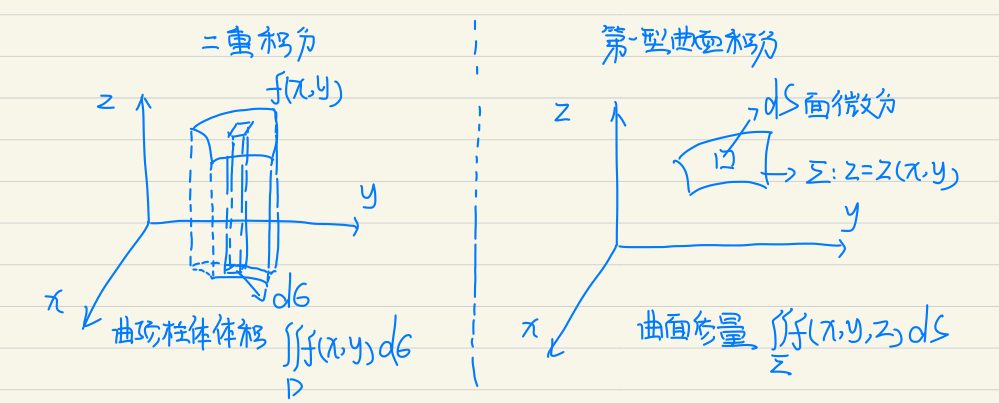 二重积分
f(x,y)
z
y
x
dσ
曲顶柱体体积 ∬f(x,y)dσ
D
第一型曲面积分
dS面微分
z
Σ:z=z(x,y)
y
x
曲面参量 ∬f(x,y,z)dS
Σ